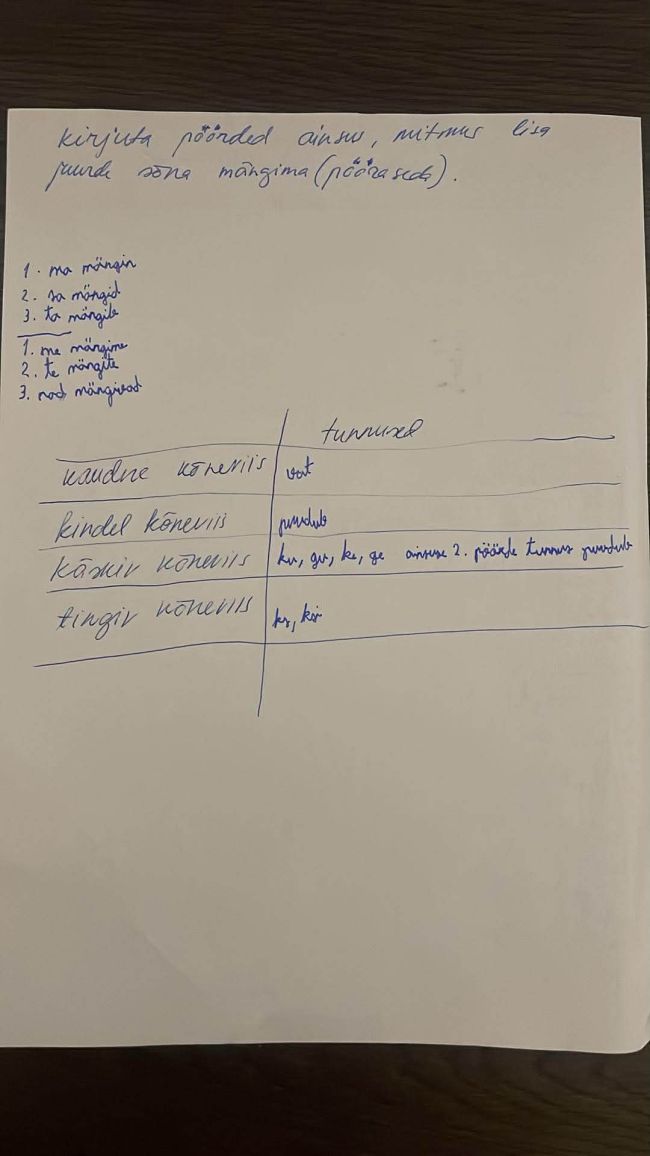 kirjuta pöörded ainsus, mitmus lisa
juurde sõna mängima (pööraseda).
1. ma mängin
2. sa mängid
3. ta mängib
1. me mängime
2. te mängite
3. nad mängivad
tunnused
kaudne kõneviis vat
kindel kõneviis puudub
käskiv kõneviis ku, gu, ke, ge ainsuse 2. pöörde tunnus puudub
tingiv kõneviis ks,